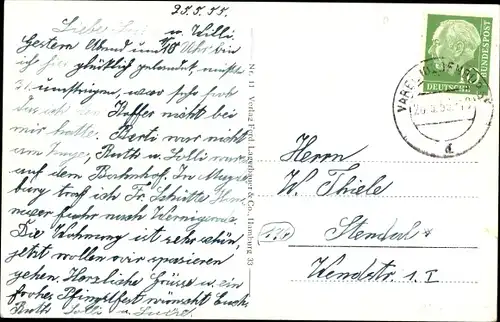 25.5.55.
Lieber
u. Willi
Gestern Abend um 10 Uhr bin
ich hier glücklich gelandet, mußte
2x umsteigen, war sehr froh
das ich den Koffer nicht bei
mir hatte. Berti war nicht
am Zuge, Ruth u. Lilli waren
auf dem Bahnhof. In Magde
burg traf ich Fr. Schütte Han
nover fuhr nach Wernigerode.
Die Wohnung ist sehr schön,
jetzt wollen wir spazieren
gehen. Herzliche Grüsse u. ein
frohes Pfingstfest wünscht Euch
Ruth Lilli u.
Nr. 11 Verlag Ferd. Lagerbauer & Co., Hamburg 33
DEUTSCHE BUNDESPOST
VAREL (OLDENBURG)
d
Herrn
W. Thiele
Stendal
Wendstr. 1. I